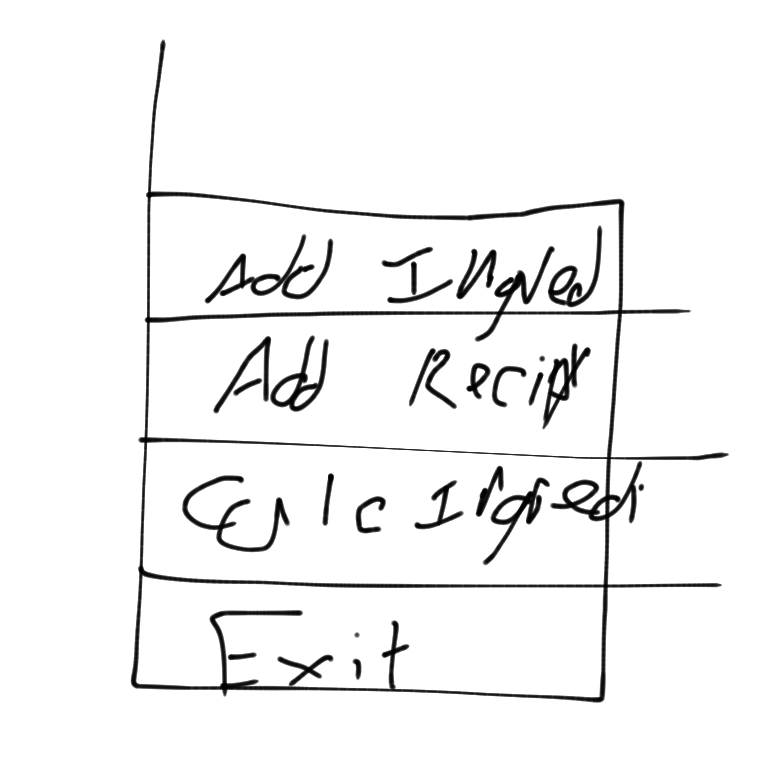 Add Ingred
Add Recip
Calc Ingredi
Exit